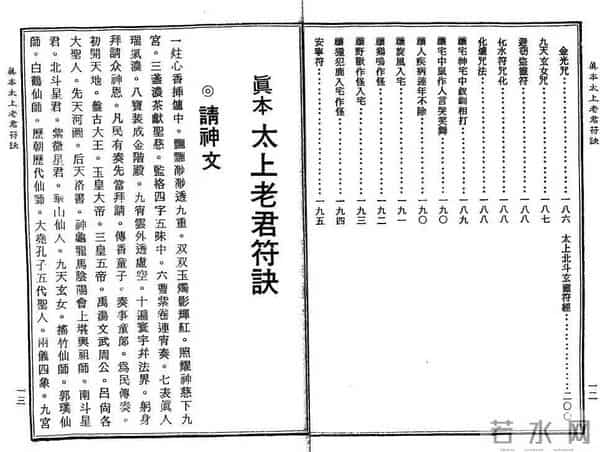 真本太上老君符訣
金光咒…………一八六
九天玄女咒…………一八七
避葯盜靈符…………一八八
化水符咒化…………一八八
化爐咒法…………一八八
鎮宅神宅中釵釧相打…………一八九
鎮宅中鼠作人言哭笑舞…………一九〇
鎮人疾病連年不除…………一九〇
鎮旋風入宅…………一九一
鎮雞鳴作怪…………一九二
鎮野獸作怪入宅…………一九三
鎮猫犯鹿入宅作怪…………一九四
安寧符…………一九五
太上北斗玄靈符經…………二〇〇
一二
真本太上老君符訣
◎請神文
一炷心香捧爐中。飄飄渺渺透九重。双双玉燭影輝紅。照耀神慈下九
宮。三盞濃茶獻聖慈。監格四字五昧中。六曹案卷連宵奏。七表真人
瑞氣濃。八寶裝成金階殿。九宵雲外透虛空。十遍寰宇幷法界。躬身
拜請众神恩。凡民有奏先當拜請。傳香童子。奏事童郎。為民傳奏。
初開天地。盤古大王。玉皇大帝。三皇五帝。禹湯文武周公。呂尚各
大聖人。先天河圖。后天洛書。神龜龍馬陰陽會上堪輿祖師。南斗星
君。北斗星君。紫微星君。梨山仙人。九天玄女。搖竹仙師。郭璞仙
師。白鶴仙師。歷朝歷代仙師。大堯孔子五代聖人。兩儀四象。九宮
真本太上老君符訣
一三
若水网